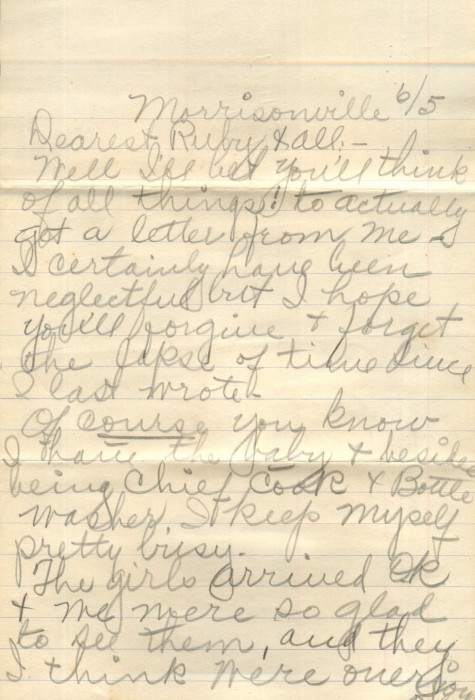 Morrisonville 6/5
Dearest Ruby & all: -
Well I'll bet you'll think
of all things! to actually
got a letter from me - I
I certainly have been
neglectful but I hope
you'll forgive & forget
the lapse of time since
I last wrote -
Of course you know
I have the baby & beside
being Chief Cook & Bottle
Washer, I keep myself
pretty busy.
The girls arrived Ok
& we were so glad
to see them, and they
I think were over